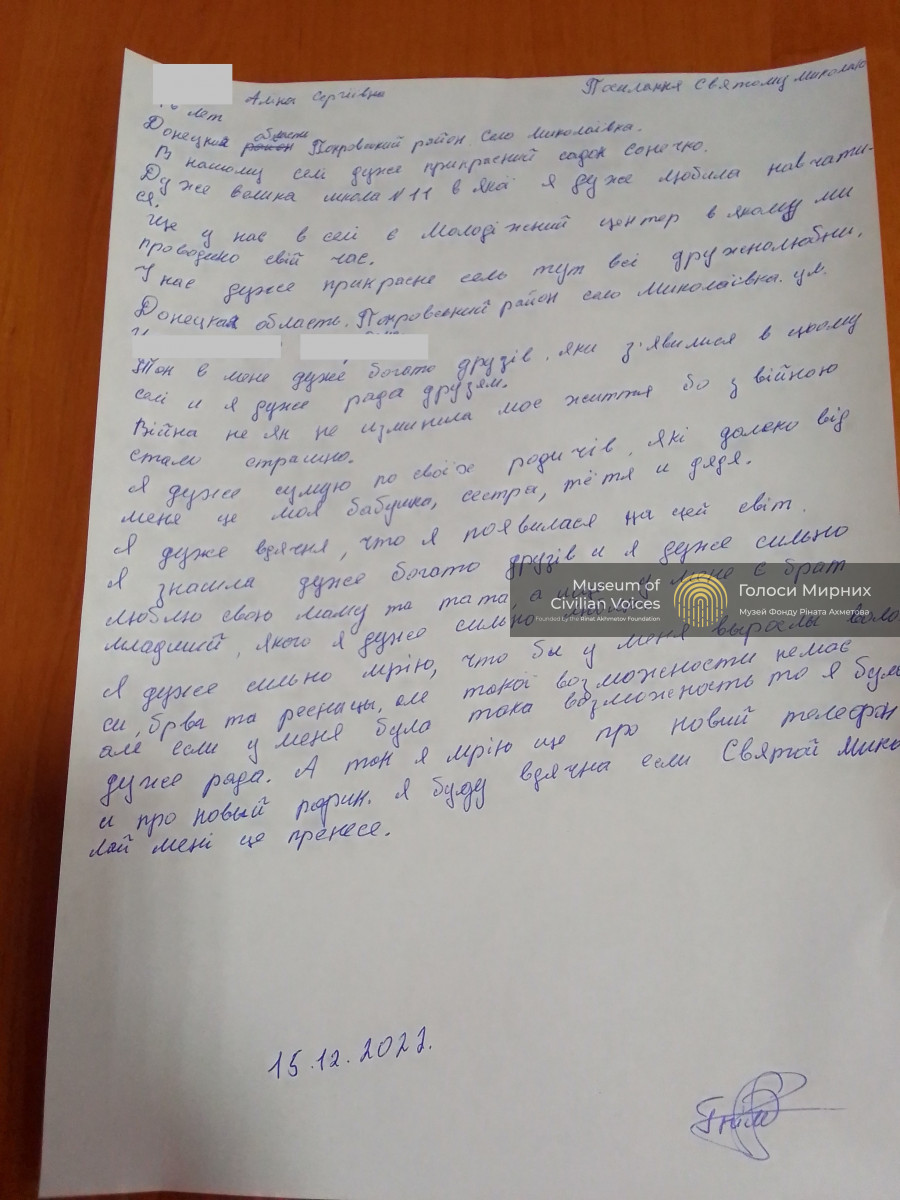 Аліна Сергіївна Посилання Святому Миколаю
лет
Донецкая область район Покровський район. Село Миколаївка.
В нашому селі дуже прикрасний садок сонечко.
Дуже велика школа №11 в якої я дуже любила навчати-
ся.
Ще у нас в селі є Молодіжний центер в якому ми
проводимо свій час.
У нас дуже прикрасне село тут всі дружнолюбни.
Донецкая область. Покровський район село Миколаївка. ул.
Тож в мене дуже богато друзів. яки з'явилися в цьому
селі и я дуже рада друзям.
Війна не як не изминила моє життя бо з війною
стало страшно.
Я дуже сумую по своїх родичів. які далеко від
мене це моя бабушка, сестра, тётя и дядя.
Я дуже вдячня, что я появилася на цей світ.
Я знашла дуже богато друзів и я дуже сильно
люблю свою маму та тата, а ще у мене є брат
младший, якого я дуже сильно люблю.
Я дуже сильно мрію, что бы у меня выросли воло
си, брва та ресницы, але такої возможности немає
але если у меня була така возможность то я була
дуже рада. А тож я мрію ще про новий телефон
и про новый рофик. Я буду вдячна если Святой Мико
лай мені це пренесе.
15.12.2022.
Museum of
Civilian Voices
Founded by the Rinat Akhmetov Foundation
Голоси Мирних
Музей Фонду Ріната Ахметова